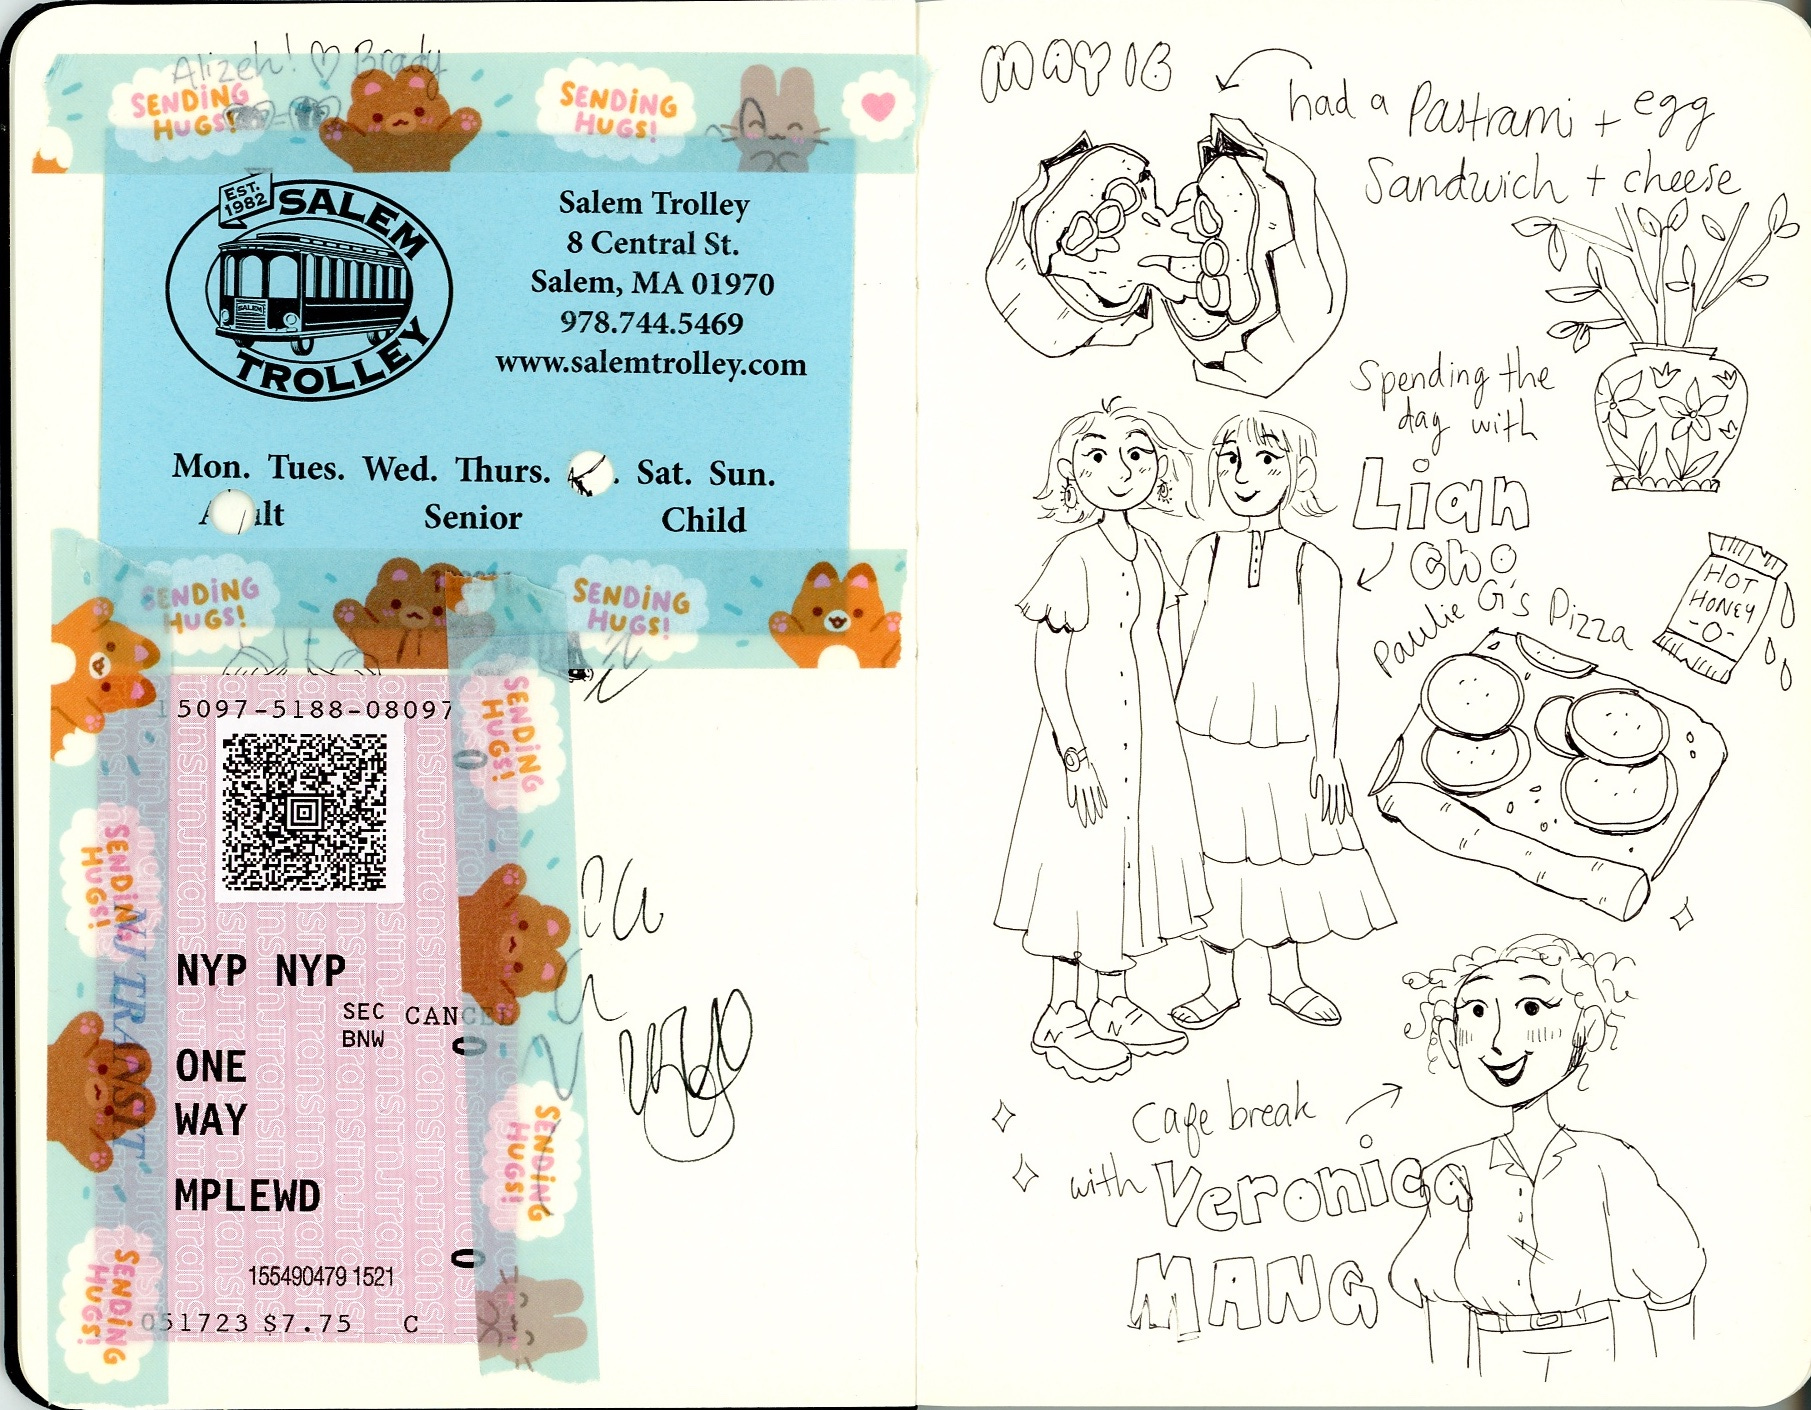 Alizeh! ♡ Brady
SENDING HUGS!
SENDING HUGS!
EST. 1982
SALEM TROLLEY
SALEM
Salem Trolley
8 Central St.
Salem, MA 01970
978.744.5469
www.salemtrolley.com
Mon. Tues. Wed. Thurs. Sat. Sun.
Senior Child
SENDING HUGS!
SENDING HUGS!
15097-5188-08097
SENDING HUGS!
SENDING HUGS!
NJ TRANSIT
NYP NYP
SEC CANCEL
BNW
ONE
WAY
MPLEWD
SENDING HUGS!
SENDING HUGS!
155490479 1521
051723 $7.75 C
MAY 16
had a Pastrami + egg
Sandwich + cheese
Spending the
day with
Lian
Cho
Paulie G's Pizza
HOT
HONEY
-O-
Cafe break
with Veronica
MANG